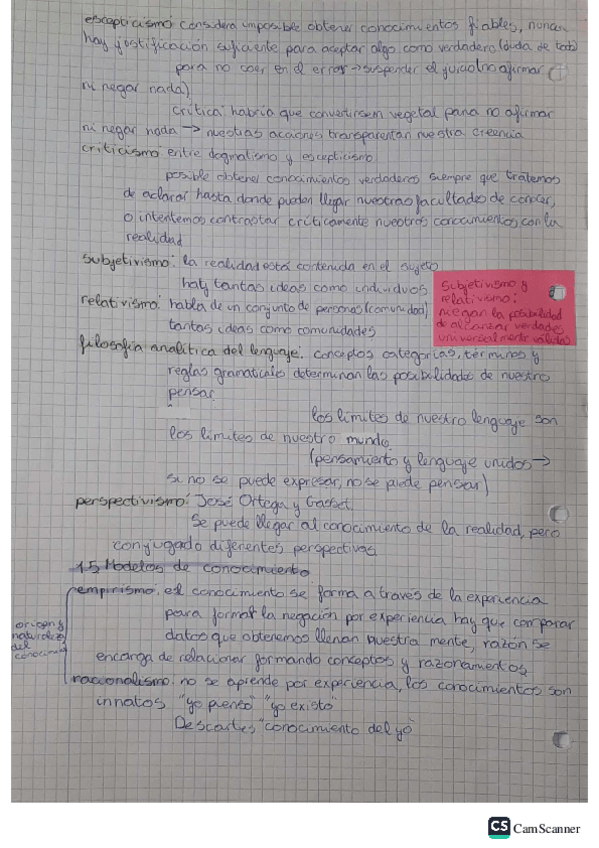 escepticismo: considera imposible obtener conocimientos fiables, nunca
hay justificación suficiente para aceptar algo como verdadero (duda de todo)
para no caer en el error → suspender el juicio (no afirmar
ni negar nada)
crítica: habría que convertirse en vegetal para no afirmar
ni negar nada → nuestras acciones transparentan nuestra creencia
criticismo: entre dogmatismo y escepticismo
posible obtener conocimientos verdaderos siempre que tratemos
de aclarar hasta donde pueden llegar nuestras facultades de conocer,
o intentemos contrastar críticamente nuestros conocimientos con la
realidad
subjetivismo: la realidad está contenida en el sujeto
hay tantas ideas como individuos
relativismo: habla de un conjunto de personas (comunidad)
tantas ideas como comunidades
Subjetivismo y
relativismo:
niegan la posibilidad
de alcanzar verdades
universalmente válidas
filosofía analítica del lenguaje: conceptos categorías, términos y
reglas gramaticales determinan las posibilidades de nuestro
pensar
los límites de nuestro lenguaje son
los límites de nuestro mundo
(pensamiento y lenguaje unidos →
si no se puede expresar, no se puede pensar)
perspectivismo: José Ortega y Gasset.
Se puede llegar al conocimiento de la realidad, pero
conjugado diferentes perspectivas
1.5 Modelos de conocimiento
origen y
naturaleza
del
conocim.
empirismo: el conocimiento se forma a través de la experiencia
para formar la negación por experiencia hay que comparar
datos que obtenemos llenan nuestra mente, razón se
encarga de relacionar formando conceptos y razonamientos
racionalismo: no se aprende por experiencia, los conocimientos son
innatos "yo pienso" "yo existo"
Descartes "conocimiento del yo"
CS CamScanner